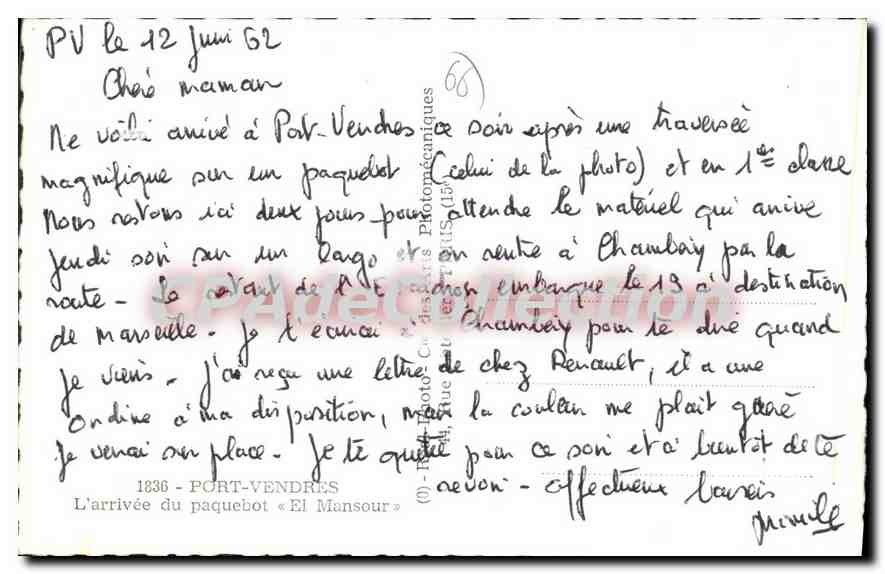 PV le 12 Juin 62
Chère maman
68
Me voilà arrivé à Port-Vendres ce soir après une traversée
magnifique sur un paquebot (celui de la photo) et en 1ère classe
Nous restons ici deux jours pour attendre le matériel qui arrive
jeudi soir sur un cargo et on rentre à Chambéry par la
route - Le restant de l' embarque le 19 à destination
de Marseille - Je t'écrirai à Chambéry pour te dire quand
je viens - J'ai reçu une lettre de chez Renault, il a une
ondine à ma disposition, mais la couleur me plait guère
Je verrai sur place - Je te quitte pour ce soir et à bientôt de te
revoir - affectueux baisers
1836 - PORT-VENDRES
L'arrivée du paquebot « El Mansour »
Photomécaniques
44, Rue PARIS (15e
CPAdeCollection